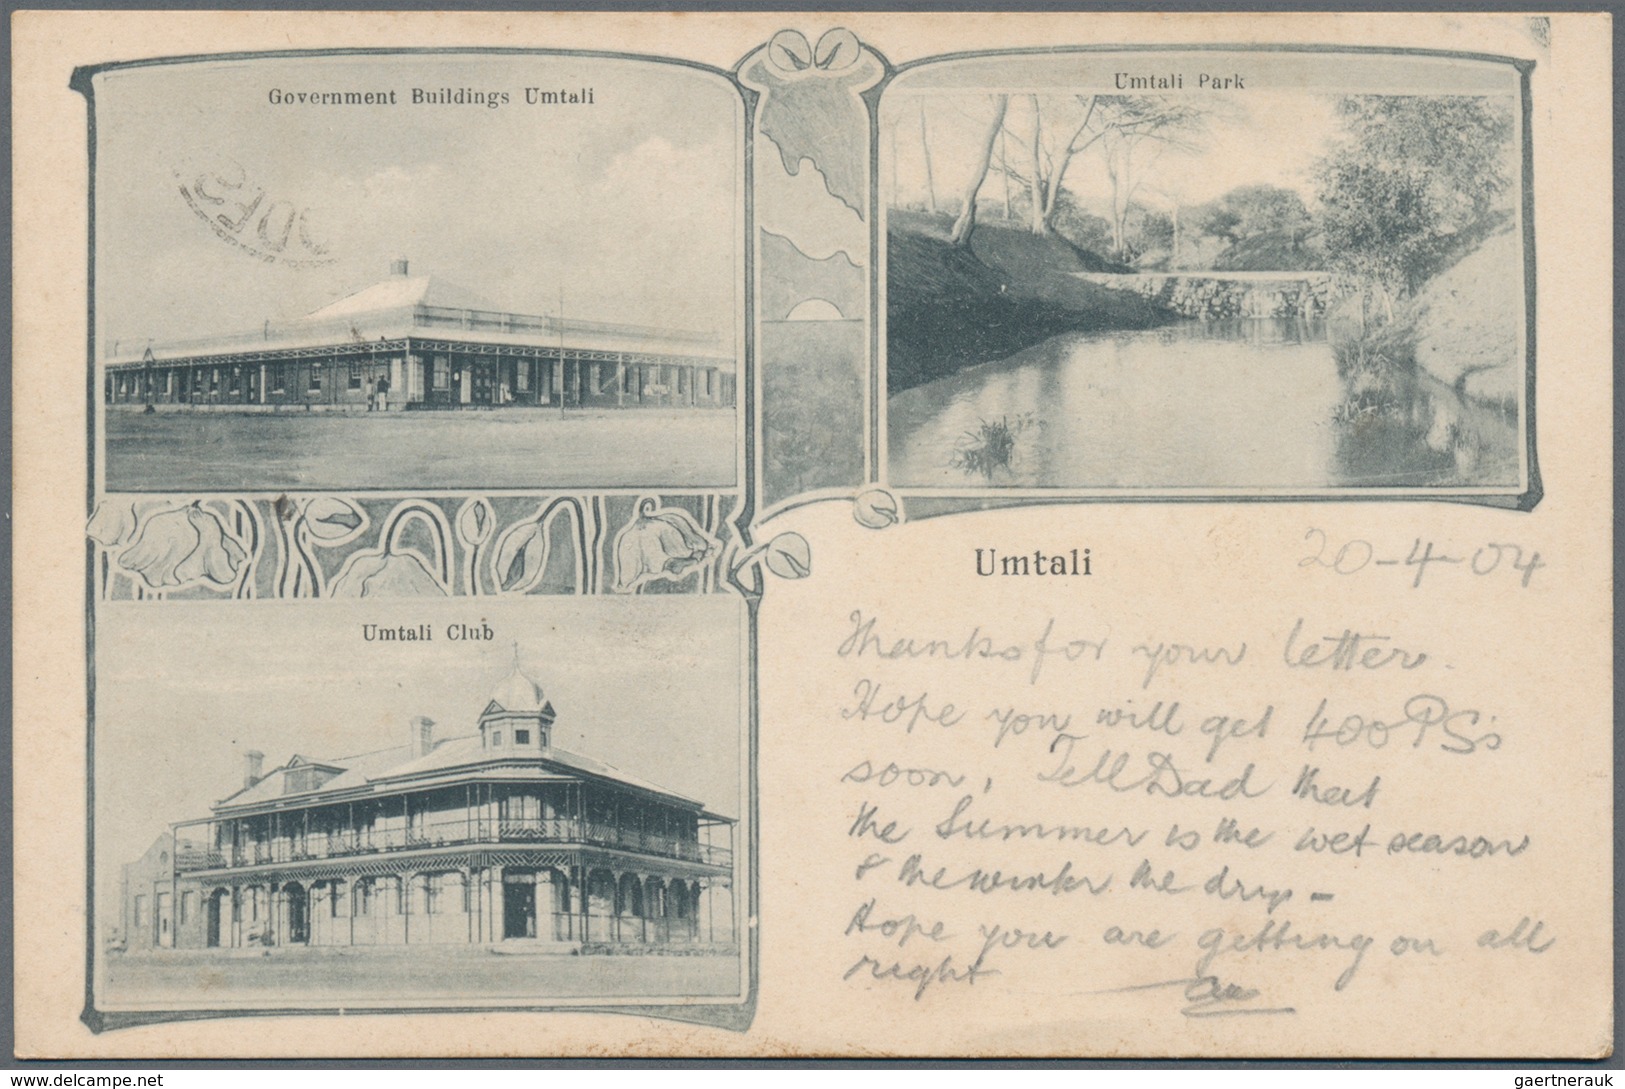 Government Buildings Umtali
Umtali Park
Umtali Club
Umtali
20-4-04
Thanks for your letter.
Hope you will get 400 PS's
soon, Tell Dad that
the Summer is the wet season
& the winter the dry -
Hope you are getting on all
right
© www.delcampe.net
gaertnerauk